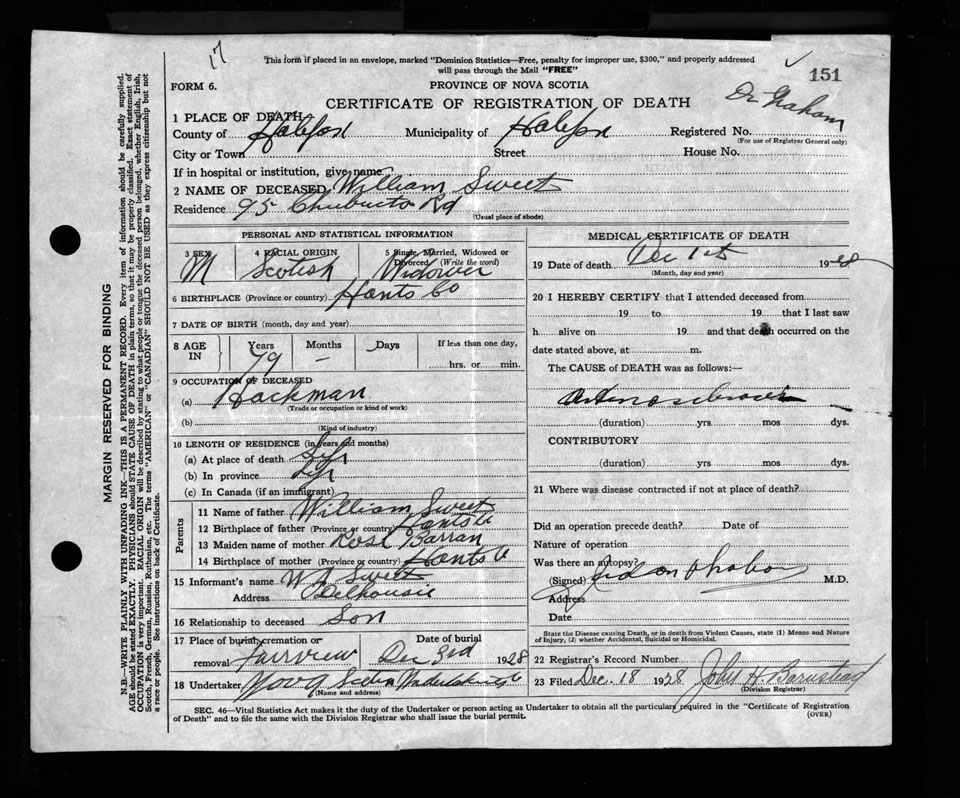 17
This form if placed in an envelope, marked "Dominion Statistics—Free, penalty for improper use, $300," and properly addressed
will pass through the Mail "FREE"
151
FORM 6.
PROVINCE OF NOVA SCOTIA
CERTIFICATE OF REGISTRATION OF DEATH
Dr Graham
1 PLACE OF DEATH
County of Halifax Municipality of Halifax Registered No.
(For use of Registrar General only)
City or Town Street House No.
If in hospital or institution, give name
2 NAME OF DECEASED William Sweet
Residence 95 Chebucto Rd
(Usual place of abode)
PERSONAL AND STATISTICAL INFORMATION
3 SEX 4 RACIAL ORIGIN 5 Single, Married, Widowed or
Divorced (Write the word)
M Scotish Widower
6 BIRTHPLACE (Province or country) Hants Co
7 DATE OF BIRTH (month, day and year)
8 AGE IN Years Months Days If less than one day,
79 – hrs. or min.
9 OCCUPATION OF DECEASED
(a) Hackman
(Trade or occupation or kind of work)
(b)
(Kind of industry)
10 LENGTH OF RESIDENCE (in years and months)
(a) At place of death Life
(b) In province Life
(c) In Canada (if an immigrant)
Parents
11 Name of father William Sweet
12 Birthplace of father (Province or country) Hants Co
13 Maiden name of mother Rose Barran
14 Birthplace of mother (Province or country) Hants Co
15 Informant's name W A Sweet
Address Delhousie
16 Relationship to deceased Son
17 Place of burial, cremation or Date of burial
removal Fairview Dec 3rd 1928
18 Undertaker Nova Scotia Undertaking Co
(Name and address)
MEDICAL CERTIFICATE OF DEATH
19 Date of death Dec 1st 1928
(Month, day and year)
20 I HEREBY CERTIFY that I attended deceased from
19 to 19 that I last saw
h alive on 19 and that death occurred on the
date stated above, at m.
The CAUSE of DEATH was as follows:—
(duration) yrs mos dys.
CONTRIBUTORY
(duration) yrs mos dys.
21 Where was disease contracted if not at place of death?
Did an operation precede death? Date of
Nature of operation
Was there an autopsy?
(Signed) M.D.
Address
Date
State the Disease causing Death, or in death from Violent Causes, state (1) Means and Nature
of Injury, (2) whether Accidental, Suicidal or Homicidal.
22 Registrar's Record Number
23 Filed Dec. 18 1928 John H. Barnstead
(Division Registrar)
SEC. 46—Vital Statistics Act makes it the duty of the Undertaker or person acting as Undertaker to obtain all the particulars required in the "Certificate of Registration
of Death" and to file the same with the Division Registrar who shall issue the burial permit.
(OVER)
MARGIN RESERVED FOR BINDING
N.B—WRITE PLAINLY WITH UNFADING INK—THIS IS A PERMANENT RECORD. Every item of information should be carefully supplied.
AGE should be stated EXACTLY. PHYSICIANS should STATE CAUSE OF DEATH in plain terms, so that it may be properly classified. Exact statement of
OCCUPATION is very important. RACIAL ORIGIN will be described by stating to what people or tongue the deceased person belonged, whether English, Irish,
Scotch, French, German, Russian, Ruthenian, etc. The terms "AMERICAN" or "CANADIAN" SHOULD NOT BE USED as they express citizenship but not
a race or people. See instructions on back of Certificate.